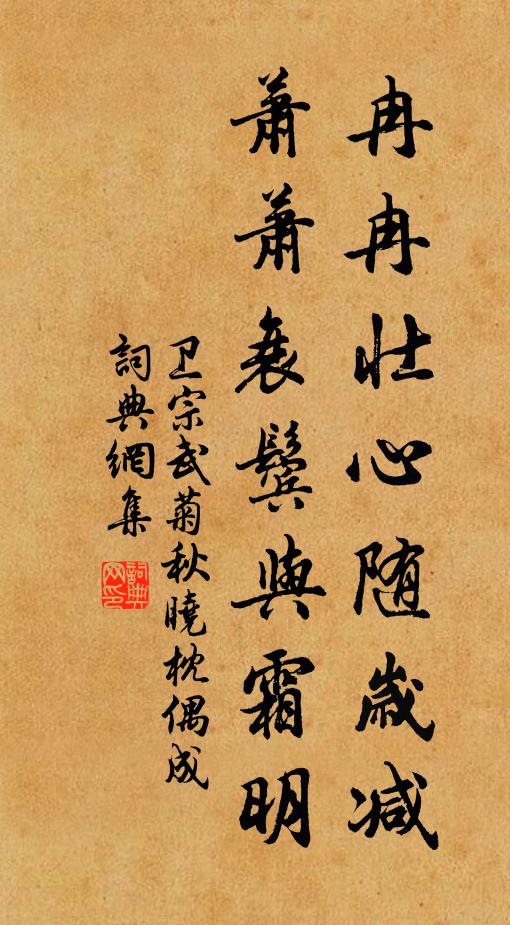 冉冉壮心随岁减
萧萧衰鬓与霜明
卫宗武菊秋曉枕偶成
詞典網集
詞典网印